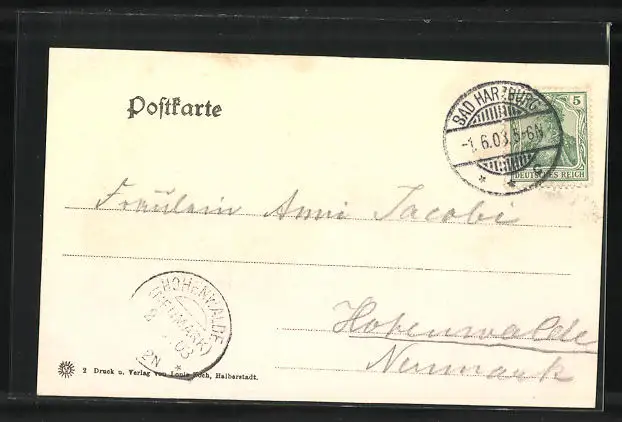 Postkarte
BAD HARZBURG
-1.6.03.5-6N
c
5
DEUTSCHES REICH
Fräulein Anni Jacobi
HOHENWALDE
(NEUMARK)
03
2N
Hohenwalde
Neumark
2 Druck u. Verlag von Louis Koch, Halberstadt.